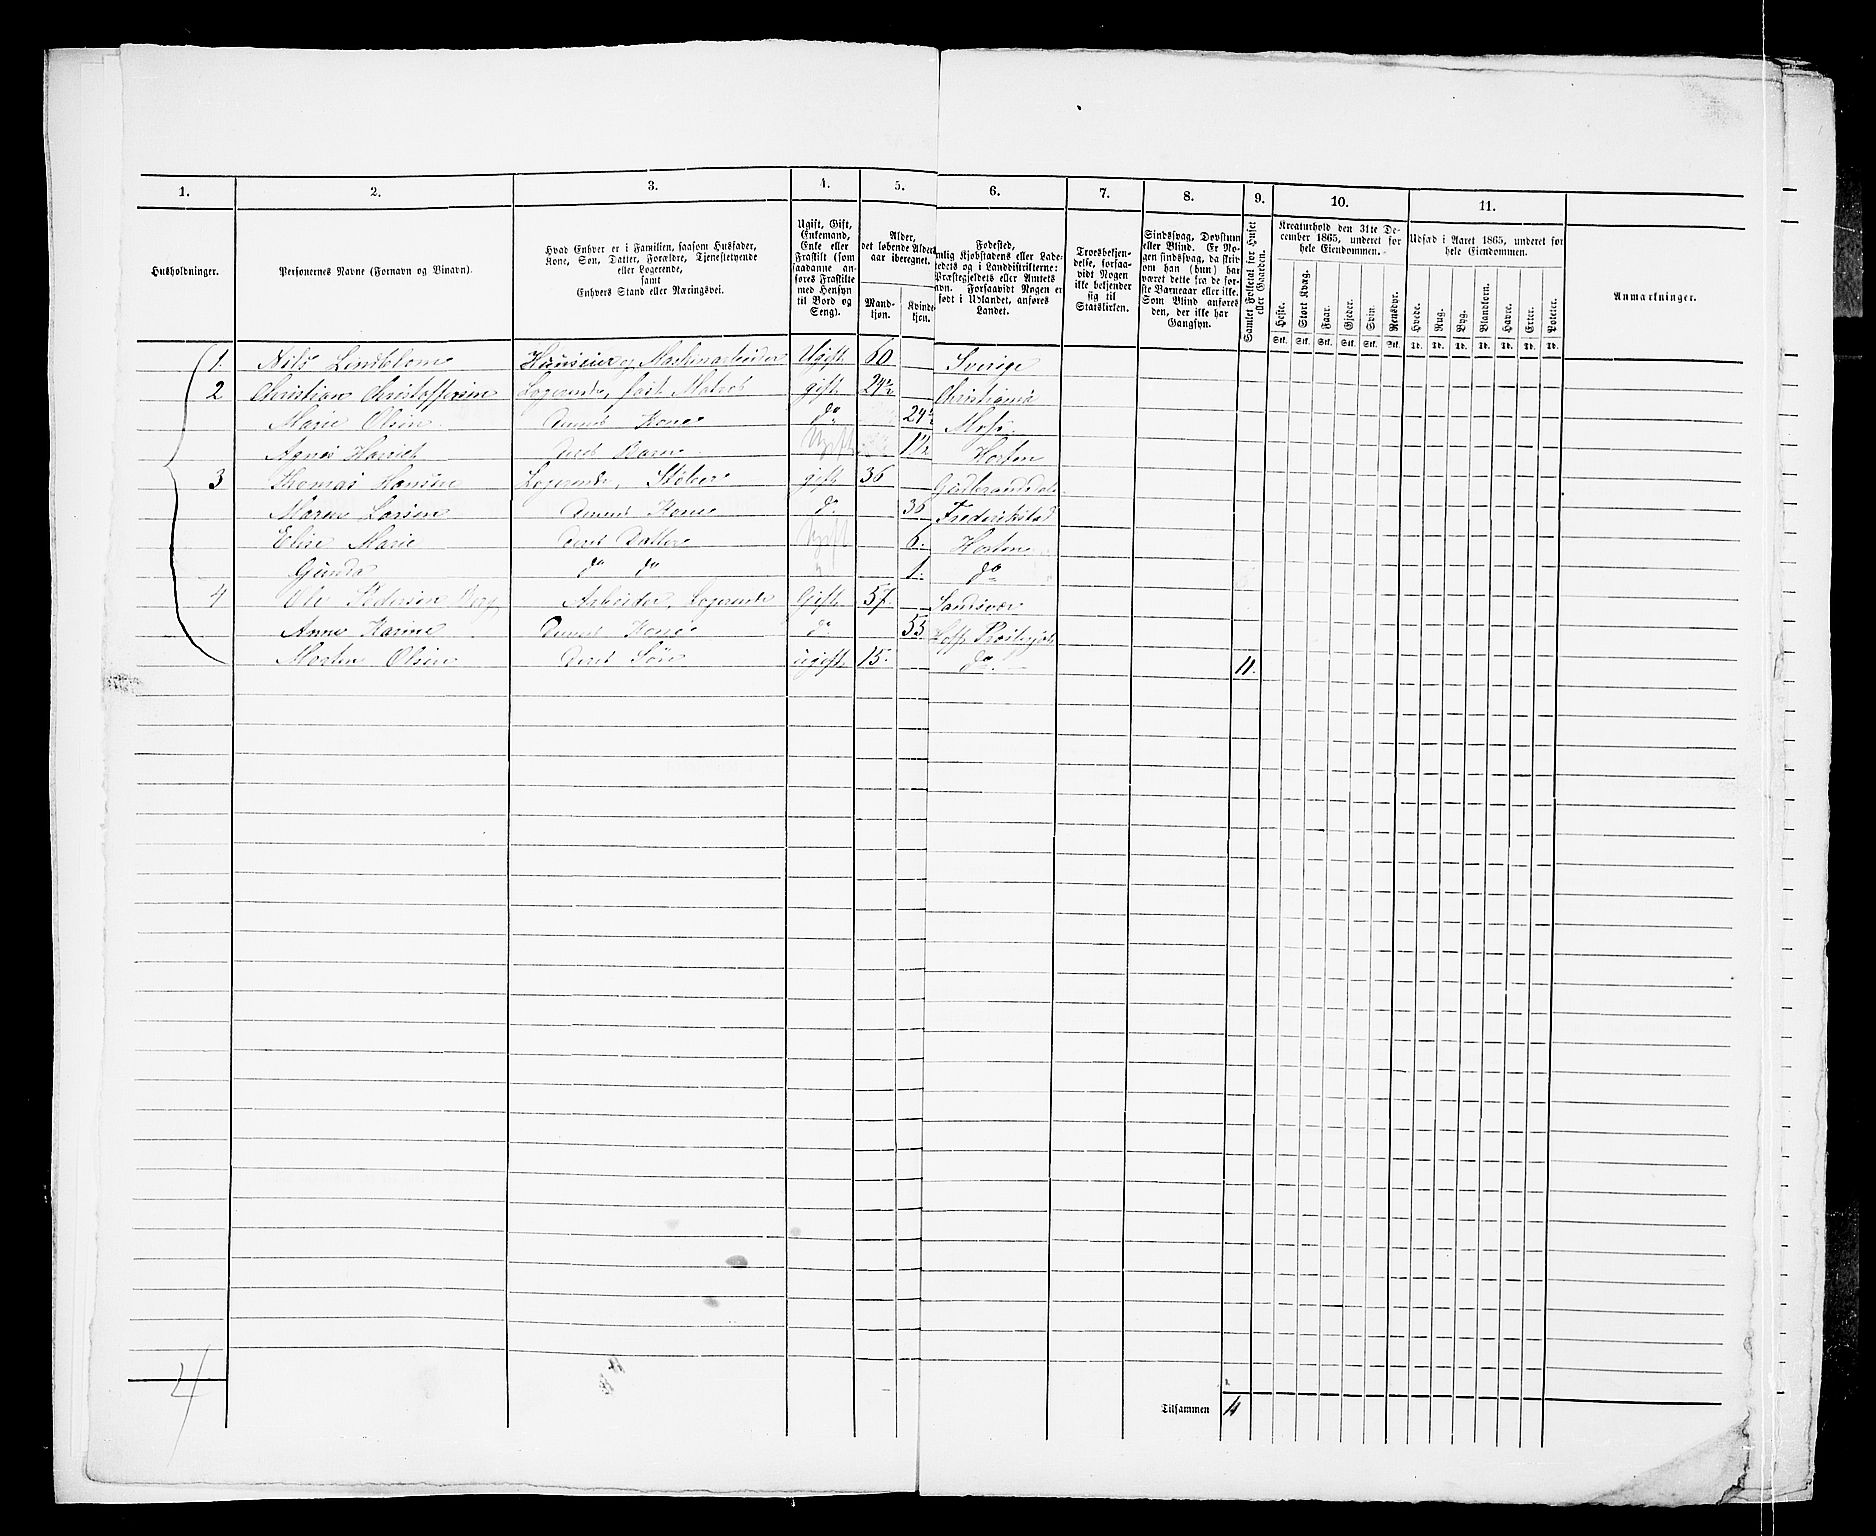 1. 2. 3. 4. 5. 6. 7. 8. 9. 10. 11.
Husholdninger.
Personernes Navne (Fornavn og Binavn).
Hvad Enhver er i Familien, saasom Husfader,
Kone, Søn, Datter, Forældre, Tjenestetyende
eller Logerende,
samt
Enhvers Stand eller Næringsvei.
Ugift, Gift,
Enkemand,
Enke eller
Fraskilt (som
saadanne an-
føres Fraskilte
med Hensyn
til Bord og
Seng).
Alder,
det løbende Alders-
aar iberegnet.
Mand-
kjøn.
Kvinde-
kjøn.
Fødested,
nlig Kjøbstadens eller Lade-
stedets og i Landdistrikterne:
Præstegjeldets eller Amtets
avn. Forsaavidt Nogen er
født i Udlandet, anføres
Landet.
Troesbekjen-
delse, forsaa-
vidt Nogen
ikke bekjender
sig til
Statskirken.
Sindssvag, Døvstum
eller Blind. Er No-
gen sindssvag, da skriv
om han (hun) har
været dette fra de før-
ste Barneaar eller ikke.
Som Blind anføres
den, der ikke har
Gangsyn.
Samlet Folketal for Huset
eller Gaarden.
Kreaturhold den 31te De-
cember 1865, underet for
hele Eiendommen.
Heste. Stort Kvæg. Faar. Gjeder. Svin. Rensdyr.
Stk. Stk. Stk. Stk. Stk. Stk.
Udsæd i Aaret 1865, underet for
hele Eiendommen.
Hvede. Rug. Byg. Blandkorn. Havre. Erter. Poteter.
Td. Td. Td. Td. Td. Td. Td.
Anmærkninger.
1. Nils Lindblom Huuseier og Maskinarbeider Ugift 60 Sverige
2 Christian Christoffersen Logerende, fast Matros gift 24½ Christiania
Marie Olsen Kone do 24½ Moss
Agnes Harriet Deres Barn Ugift 1½ Horten
3 Thomas Hansen Logerende, Støber gift 36 Gudbrandsdal
Maren Larsen Kone do 36 Frederikstad
Elise Marie Deres Datter Ugift 6. Horten
Gunda do do 1. do
4 Ole Pedersen Berg Arbeider, Logerende Gift 57. Sandsvær
Anne Karine Kone do 55
Morten Olsen Deres Søn ugift 15. do 11.
Tilsammen 11
4